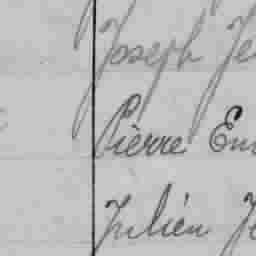 Joseph Je
Pierre Em
Julien Je